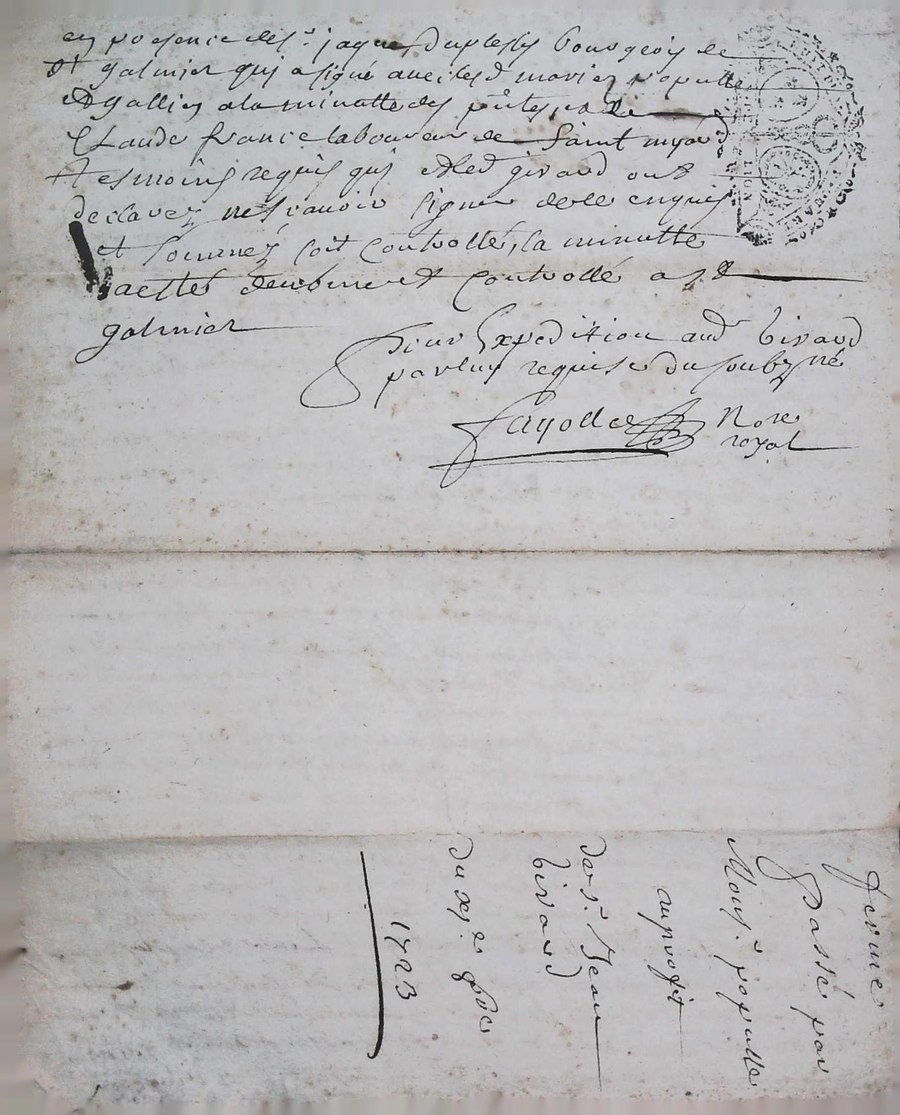 en presence de sr. jaques duplessy bourgeois de
st galmier quj a signé avec lesd morier populle
et gallien a la minutte des pntes, et de
Claude france laboureur de saint myard
tesmoins requis quj et led girard ont
declarez ne scavoir signer de ce enquis
et sommez soit controllé, la minutte
a esté deubment controllé a st
galmier
pour Expedition aud girard
par luy requise du soubzné
fayolle Nore
royal
ferme
passé par
Monsr. populle
au profit
de sr. Jean
girard
du xe.
1723